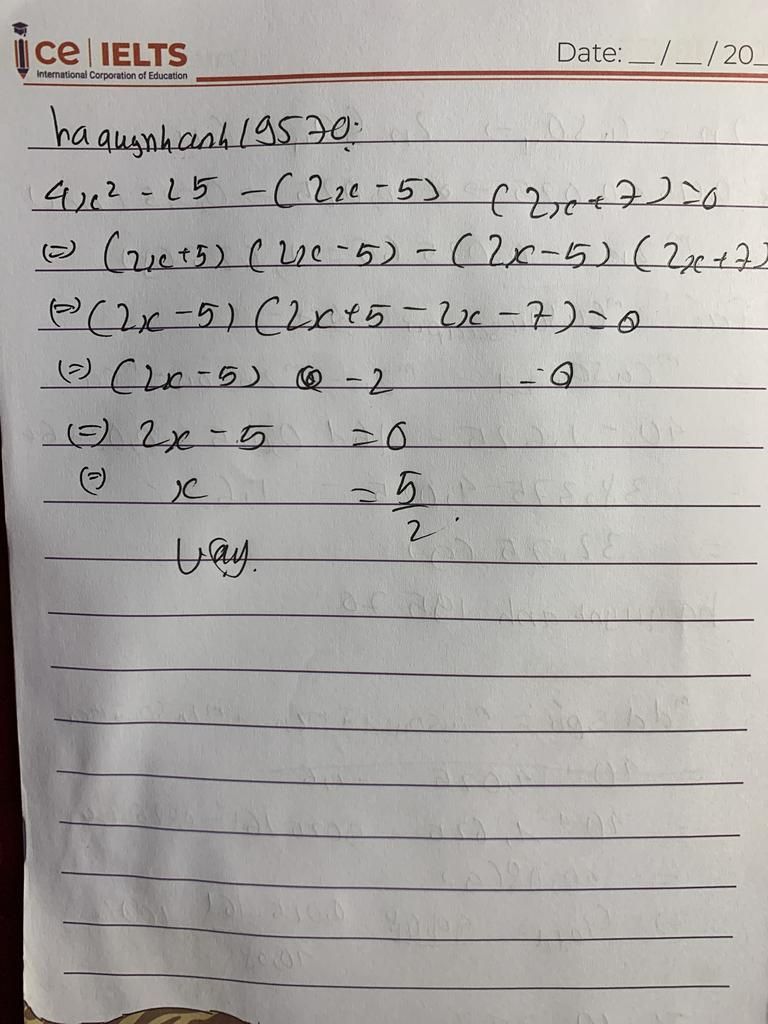 ice | IELTS
International Corporation of Education
Date: __/__/20__
haquynhanh19570:
4x² - 25 - (2x - 5) (2x + 7) = 0
(=) (2x+5) (2x - 5) - (2x - 5) (2x + 7)
(=) (2x - 5) (2x + 5 - 2x - 7) = 0
(=) (2x - 5) - 2 = 0
(=) 2x - 5 = 0
(=) x = 5/2.
Vậy.